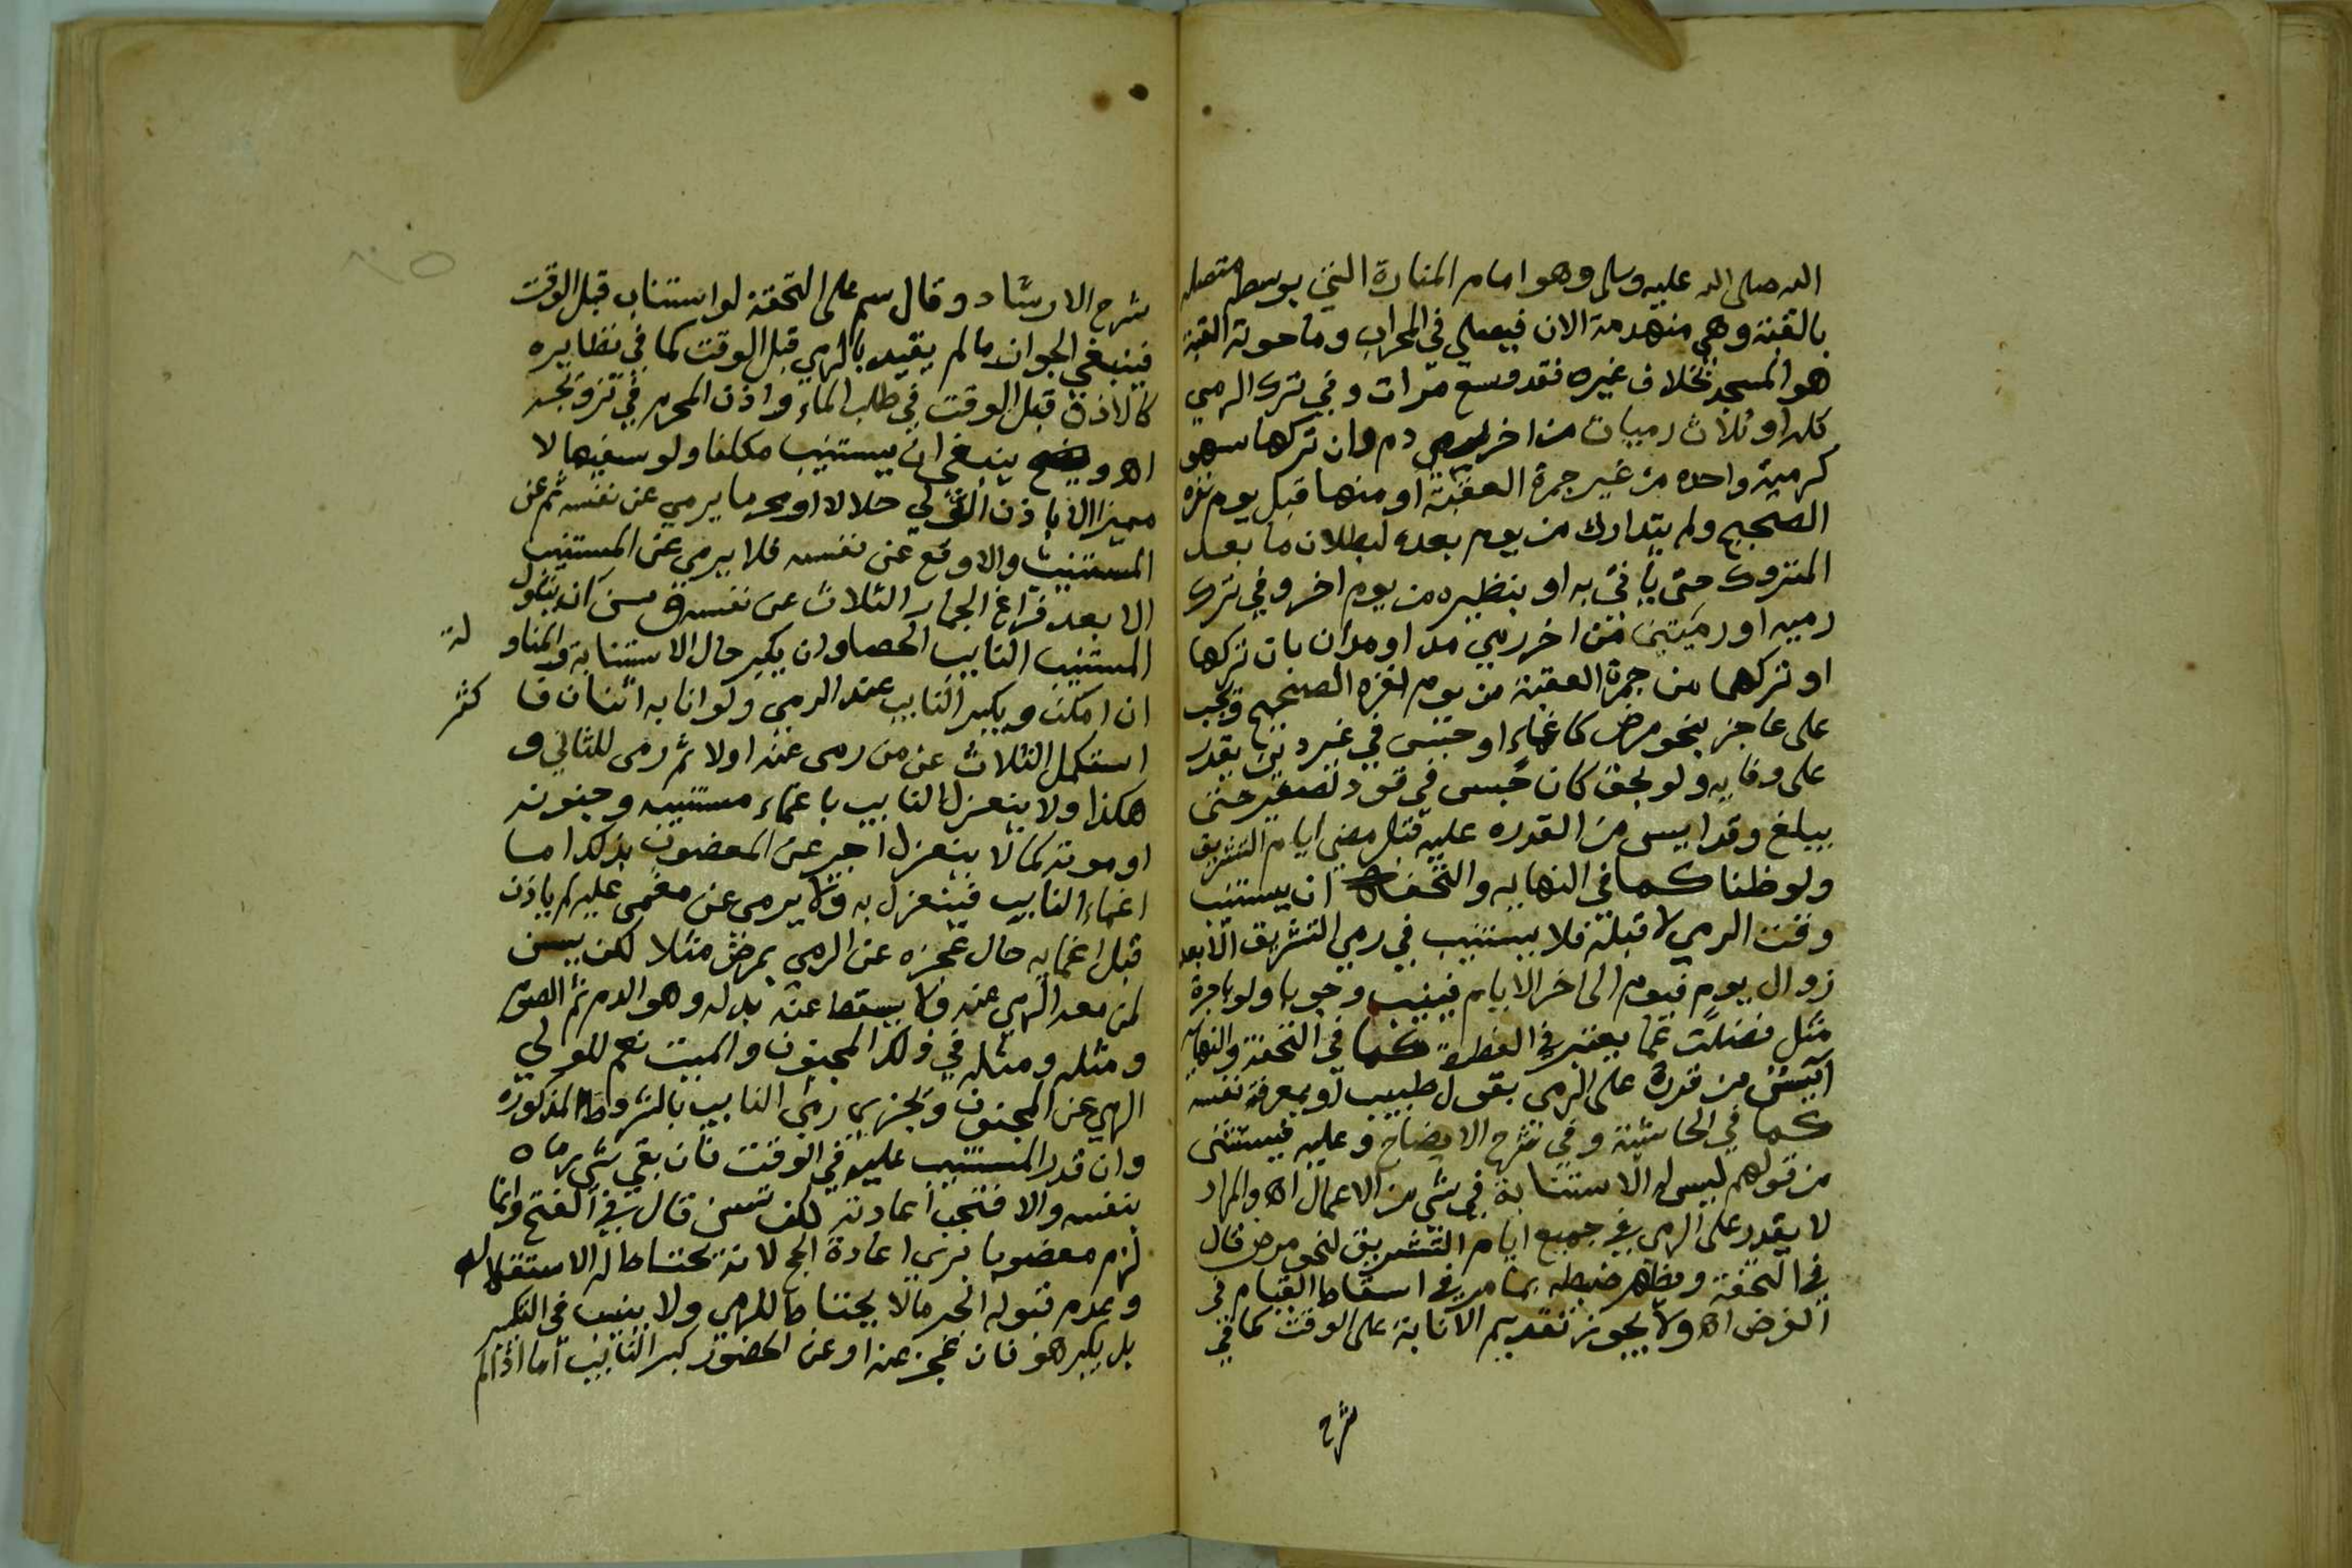 الله صلى الله عليه وسلم وهو امام المنارة التي بوسطه متصلة
بالقبة وهي منهدمة الان فيصلي في المحراب وما حوته القبة
هو المسجد بخلاف غيره فقد وسع مرات وفي ترك الرمي
كله او ثلاث رميات من اخر رمي دم وان تركها سهو
كرمية واحدة من غير جمرة العقبة او منها قبل يوم نفره
الصحيح ولم يتدارك من يوم بعده لبطلان ما بعد
المتروك حتى ياتي به او بنظيره من يوم اخر وفي ترك
رمية او رميتين من اخر رمي مد او مدان بان تركها
او تركهما من جمرة العقبة من يوم نفره الصحيح ويجب
على عاجز بنحو مرض كاغماء او حبس في غير دين يقدر
على وفايه ولو بحق كان حبس في قود لصغير حتى
يبلغ وقد ايس من القدرة عليه قبل مضي ايام التشريق
ولو ظنا كما في النهايه والتحفة ان يستنيب
وقت الرمي لا قبله فلا يستنيب في رمي التشريق الا بعد
زوال يوم فيوم الى اخر الايام فينيب وجوبا ولو باجرة
مثل فضلت عما يعتبر في الفطرة كما في التحفة والنهاية
آيس من قدرة على الرمي بقول طبيب او بمعرفة نفسه
كما في الحاشية وفي شرح الايضاح وعليه فيستثنى
من قولهم ليس له الاستنابة في شي من الاعمال اه والمراد
لا يقدر على الرمي في جميع ايام التشريق لنحو مرض قال
في التحفة ويظهر ضبطه بما مر في اسقاط القيام في
الفرض اه ولا يجوز تقديم الانابة على الوقت كما في
شرح
شرح الارشاد وقال سم على التحفة لو استناب قبل الوقت
فينبغي الجواز ما لم يقيد بالرمي قبل الوقت كما في نظايره
كالاذن قبل الوقت في طلب الماء واذن المحرم في تزويجه
اه و ينبغي ان يستنيب مكلفا ولو سفيها لا
مميزا الا باذن الولي حلالا او محرما يرمي عن نفسه ثم عن
المستنيب والا وقع عن نفسه فلا يرمي عن المستنيب
الا بعد فراغ الجمار الثلاث عن نفسه وسن ان يناول
المستنيب النايب الحصا وان يكبر حال الاستنابة والمناو لة
ان امكن ويكبر النايب عند الرمي ولو انابه اثنان فا كثر
استكمل الثلاث عن من رمى عنه اولا ثم رمى للثاني و
هكذا ولا ينعزل النايب باغماء مستنيبه وجنونه
او موته كما لا ينعزل اجير عن المعضوب بذلك اما
اغماء النايب فينعزل به ولا يرمى عن مغمى عليه لم ياذن
قبل اغمايه حال عجزه عن الرمي بمرض مثلا لكن يسن
لمن معه الرمي عنه ولا يسقط عنه بدله وهو الدم ثم الصوم
ومثله ومثله في ذلك المجنون والميت نعم للولي
الرمي عن المجنون ويجزي رمي النايب بالشروط المذكورة
وان قدر المستنيب عليه في الوقت فان بقي شي رماه
بنفسه والا فتجب اعادته لكن تسن قال في الفتح وانما
لزم معضوبا بري اعادة الحج لانه يحتاط له الاستقلاله
وعدم فتوله الجبر مالا يحتاط للرمي ولا ينيب في التكبير
بل يكبر هو فان عجز عنه او عن الحضور كبر النايب اما اذا لم